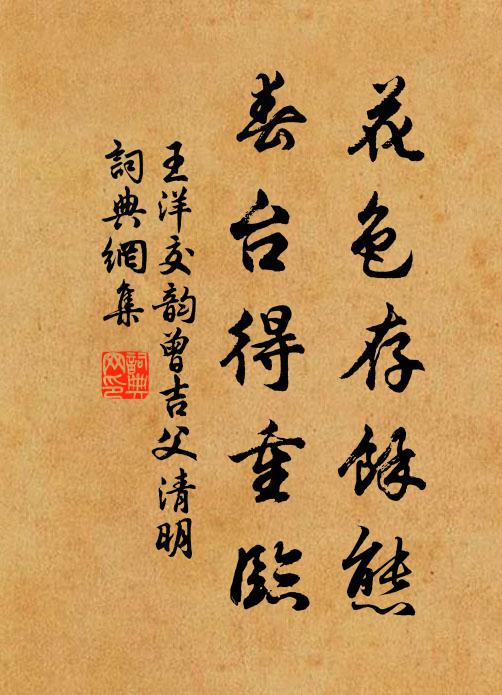 花色存餘態
春台得重臨
王洋交韵曾吉父清明
詞典網集
詞典网印